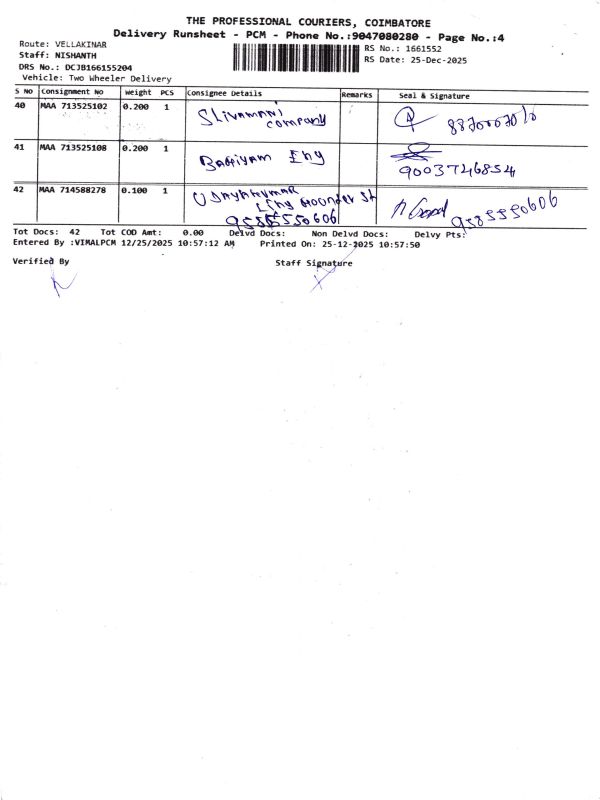 THE PROFESSIONAL COURIERS, COIMBATORE
Delivery Runsheet - PCM - Phone No.:9047080280 - Page No.:4
Route: VELLAKINAR
Staff: NISHANTH
DRS No.: DCJB166155204
Vehicle: Two Wheeler Delivery
RS No.: 1661552
RS Date: 25-Dec-2025
S NO Consignment No Weight PCS Consignee Details Remarks Seal & Signature
40 MAA 713525102 0.200 1 Shivamani
company
41 MAA 713525108 0.200 1 Bagiyam Eng
9003746854
42 MAA 714588278 0.100 1 Udayakumar
9585550606 9585550606
Tot Docs: 42 Tot COD Amt: 0.00 Delvd Docs: Non Delvd Docs: Delvy Pts:
Entered By :VIMALPCM 12/25/2025 10:57:12 AM Printed On: 25-12-2025 10:57:50
Verified By Staff Signature